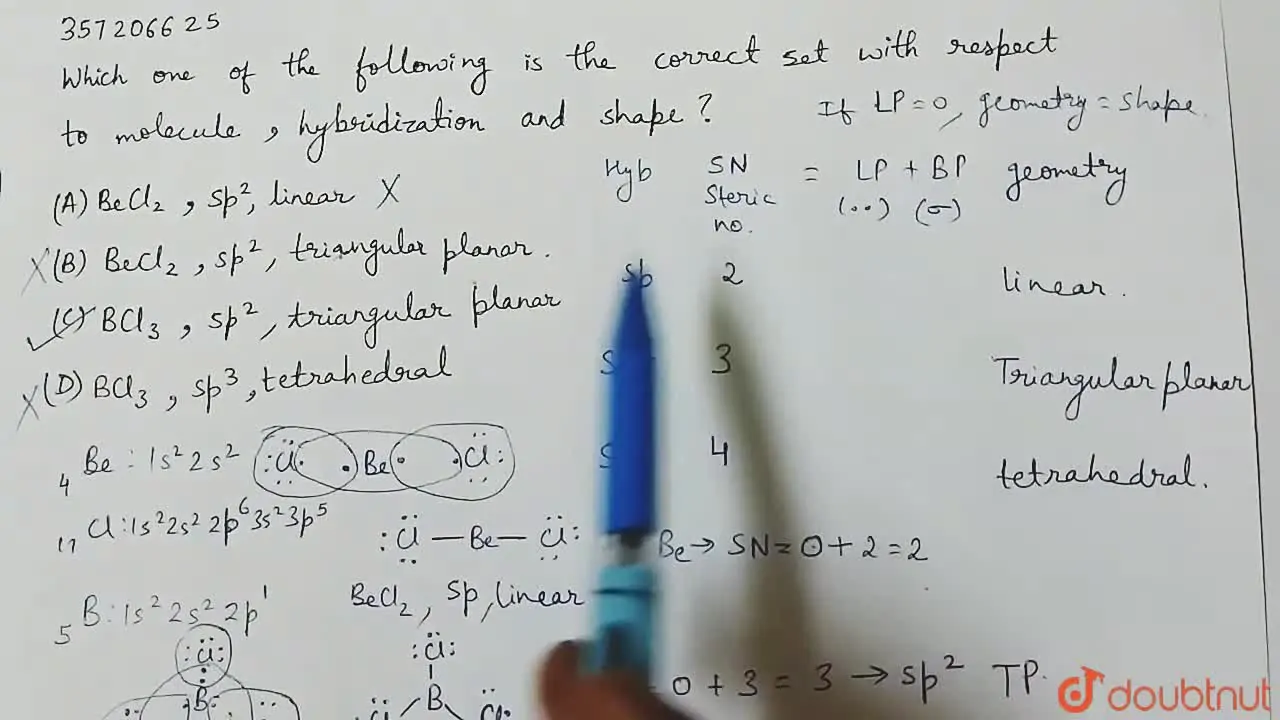 357206625
Which one of the following is the correct set with respect
to molecule, hybridization and shape?
If LP=0, geometry = shape.
(A) BeCl2, sp², linear X
X (B) BeCl2, sp², triangular planar.
✓ (C) BCl3, sp², triangular planar
X (D) BCl3, sp³, tetrahedral
Hyb SN = LP + BP geometry
Steric (..) (σ)
no.
sp 2 linear.
3 Triangular planar
4 tetrahedral.
4 Be : 1s² 2s² :Cl· ·Be· ·Cl:
17 Cl : 1s² 2s² 2p⁶ 3s² 3p⁵
:Cl — Be — Cl: Be → SN = 0 + 2 = 2
BeCl2, sp, linear
5 B : 1s² 2s² 2p¹
:Cl: :Cl:
B B
Cl Cl
0 + 3 = 3 → sp² TP.
doubtnut